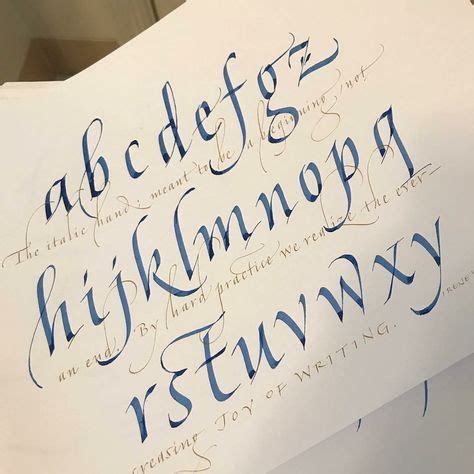 abcdefgz
The italic hand: meant to be a beginning, not
hijklmnopq
an end. By hard practice we realize the ever-
rstuvwxy
creasing JOY OF WRITING.